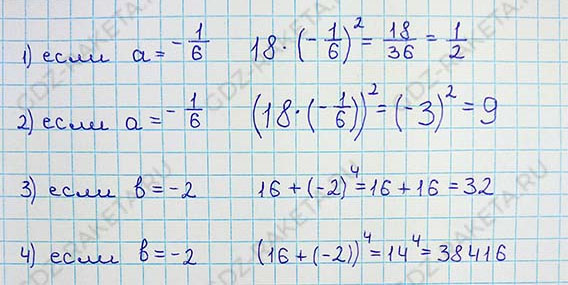 1) если a = -1/6   18 · (-1/6)² = 18/36 = 1/2
2) если a = -1/6   (18 · (-1/6))² = (-3)² = 9
3) если b = -2   16 + (-2)⁴ = 16 + 16 = 32
4) если b = -2   (16 + (-2))⁴ = 14⁴ = 38416
GDZ-RAKETA.RU